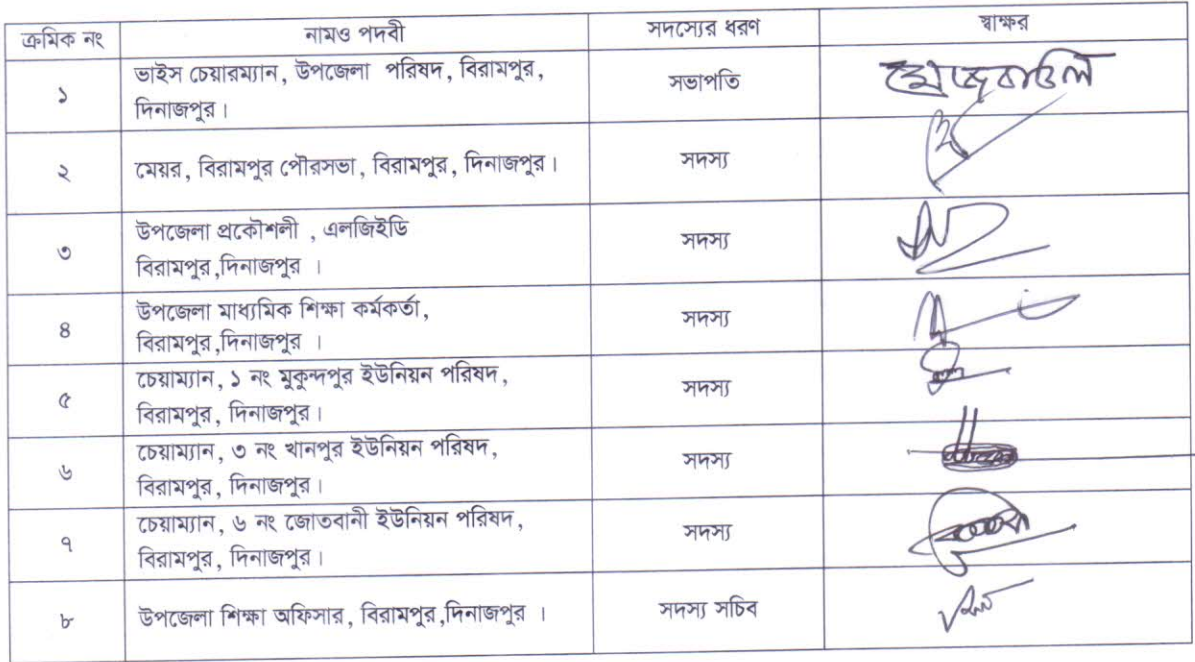 ক্রমিক নং নামও পদবী সদস্যের ধরণ স্বাক্ষর
১ ভাইস চেয়ারম্যান, উপজেলা পরিষদ, বিরামপুর,
দিনাজপুর। সভাপতি
২ মেয়র, বিরামপুর পৌরসভা, বিরামপুর, দিনাজপুর। সদস্য
৩ উপজেলা প্রকৌশলী , এলজিইডি
বিরামপুর,দিনাজপুর । সদস্য
৪ উপজেলা মাধ্যমিক শিক্ষা কর্মকর্তা,
বিরামপুর,দিনাজপুর । সদস্য
৫ চেয়াম্যান, ১ নং মুকুন্দপুর ইউনিয়ন পরিষদ,
বিরামপুর, দিনাজপুর। সদস্য
৬ চেয়াম্যান, ৩ নং খানপুর ইউনিয়ন পরিষদ,
বিরামপুর, দিনাজপুর। সদস্য
৭ চেয়াম্যান, ৬ নং জোতবানী ইউনিয়ন পরিষদ,
বিরামপুর, দিনাজপুর। সদস্য
৮ উপজেলা শিক্ষা অফিসার, বিরামপুর,দিনাজপুর । সদস্য সচিব